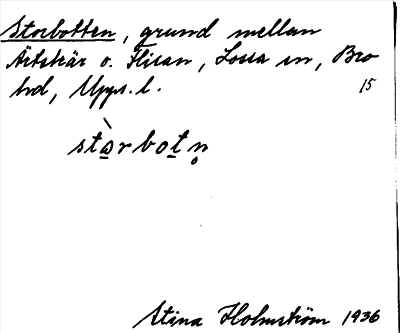 Storbotten, grund mellan
Ärtskär o. Flisan, Lossa sn, Bro
hd, Uppl. l. 15
stòrbotn̥
Stina Holmström 1936